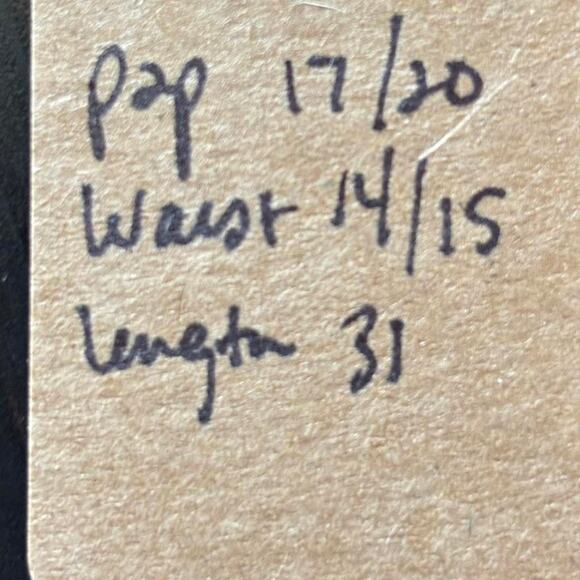 pap 17/20
Waist 14/15
length 31